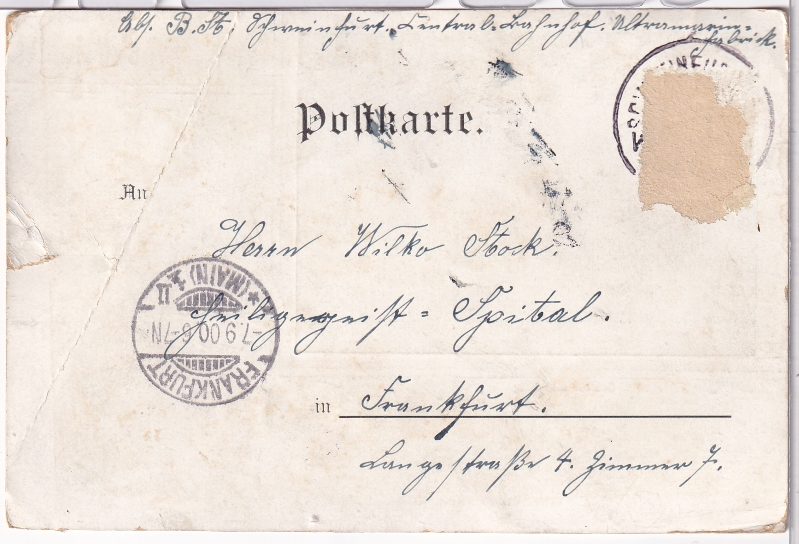 Abs. B. St. Schweinfurt. Central-Bahnhof. Ultramarin-
fabrick.
SCHWEINFU
Postkarte.
An
Herrn Wilko Stock.
Heiligegeist=Spital.
in Frankfurt.
Langestraße 4. Zimmer 7.
FRANKFURT
-7.9.00.6-7N
*(MAIN)